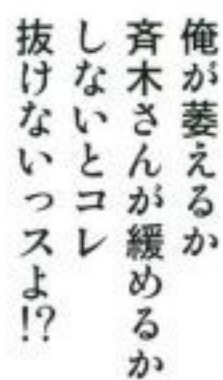 俺が萎えるか
斉木さんが緩めるか
しないとコレ
抜けないっスよ!?